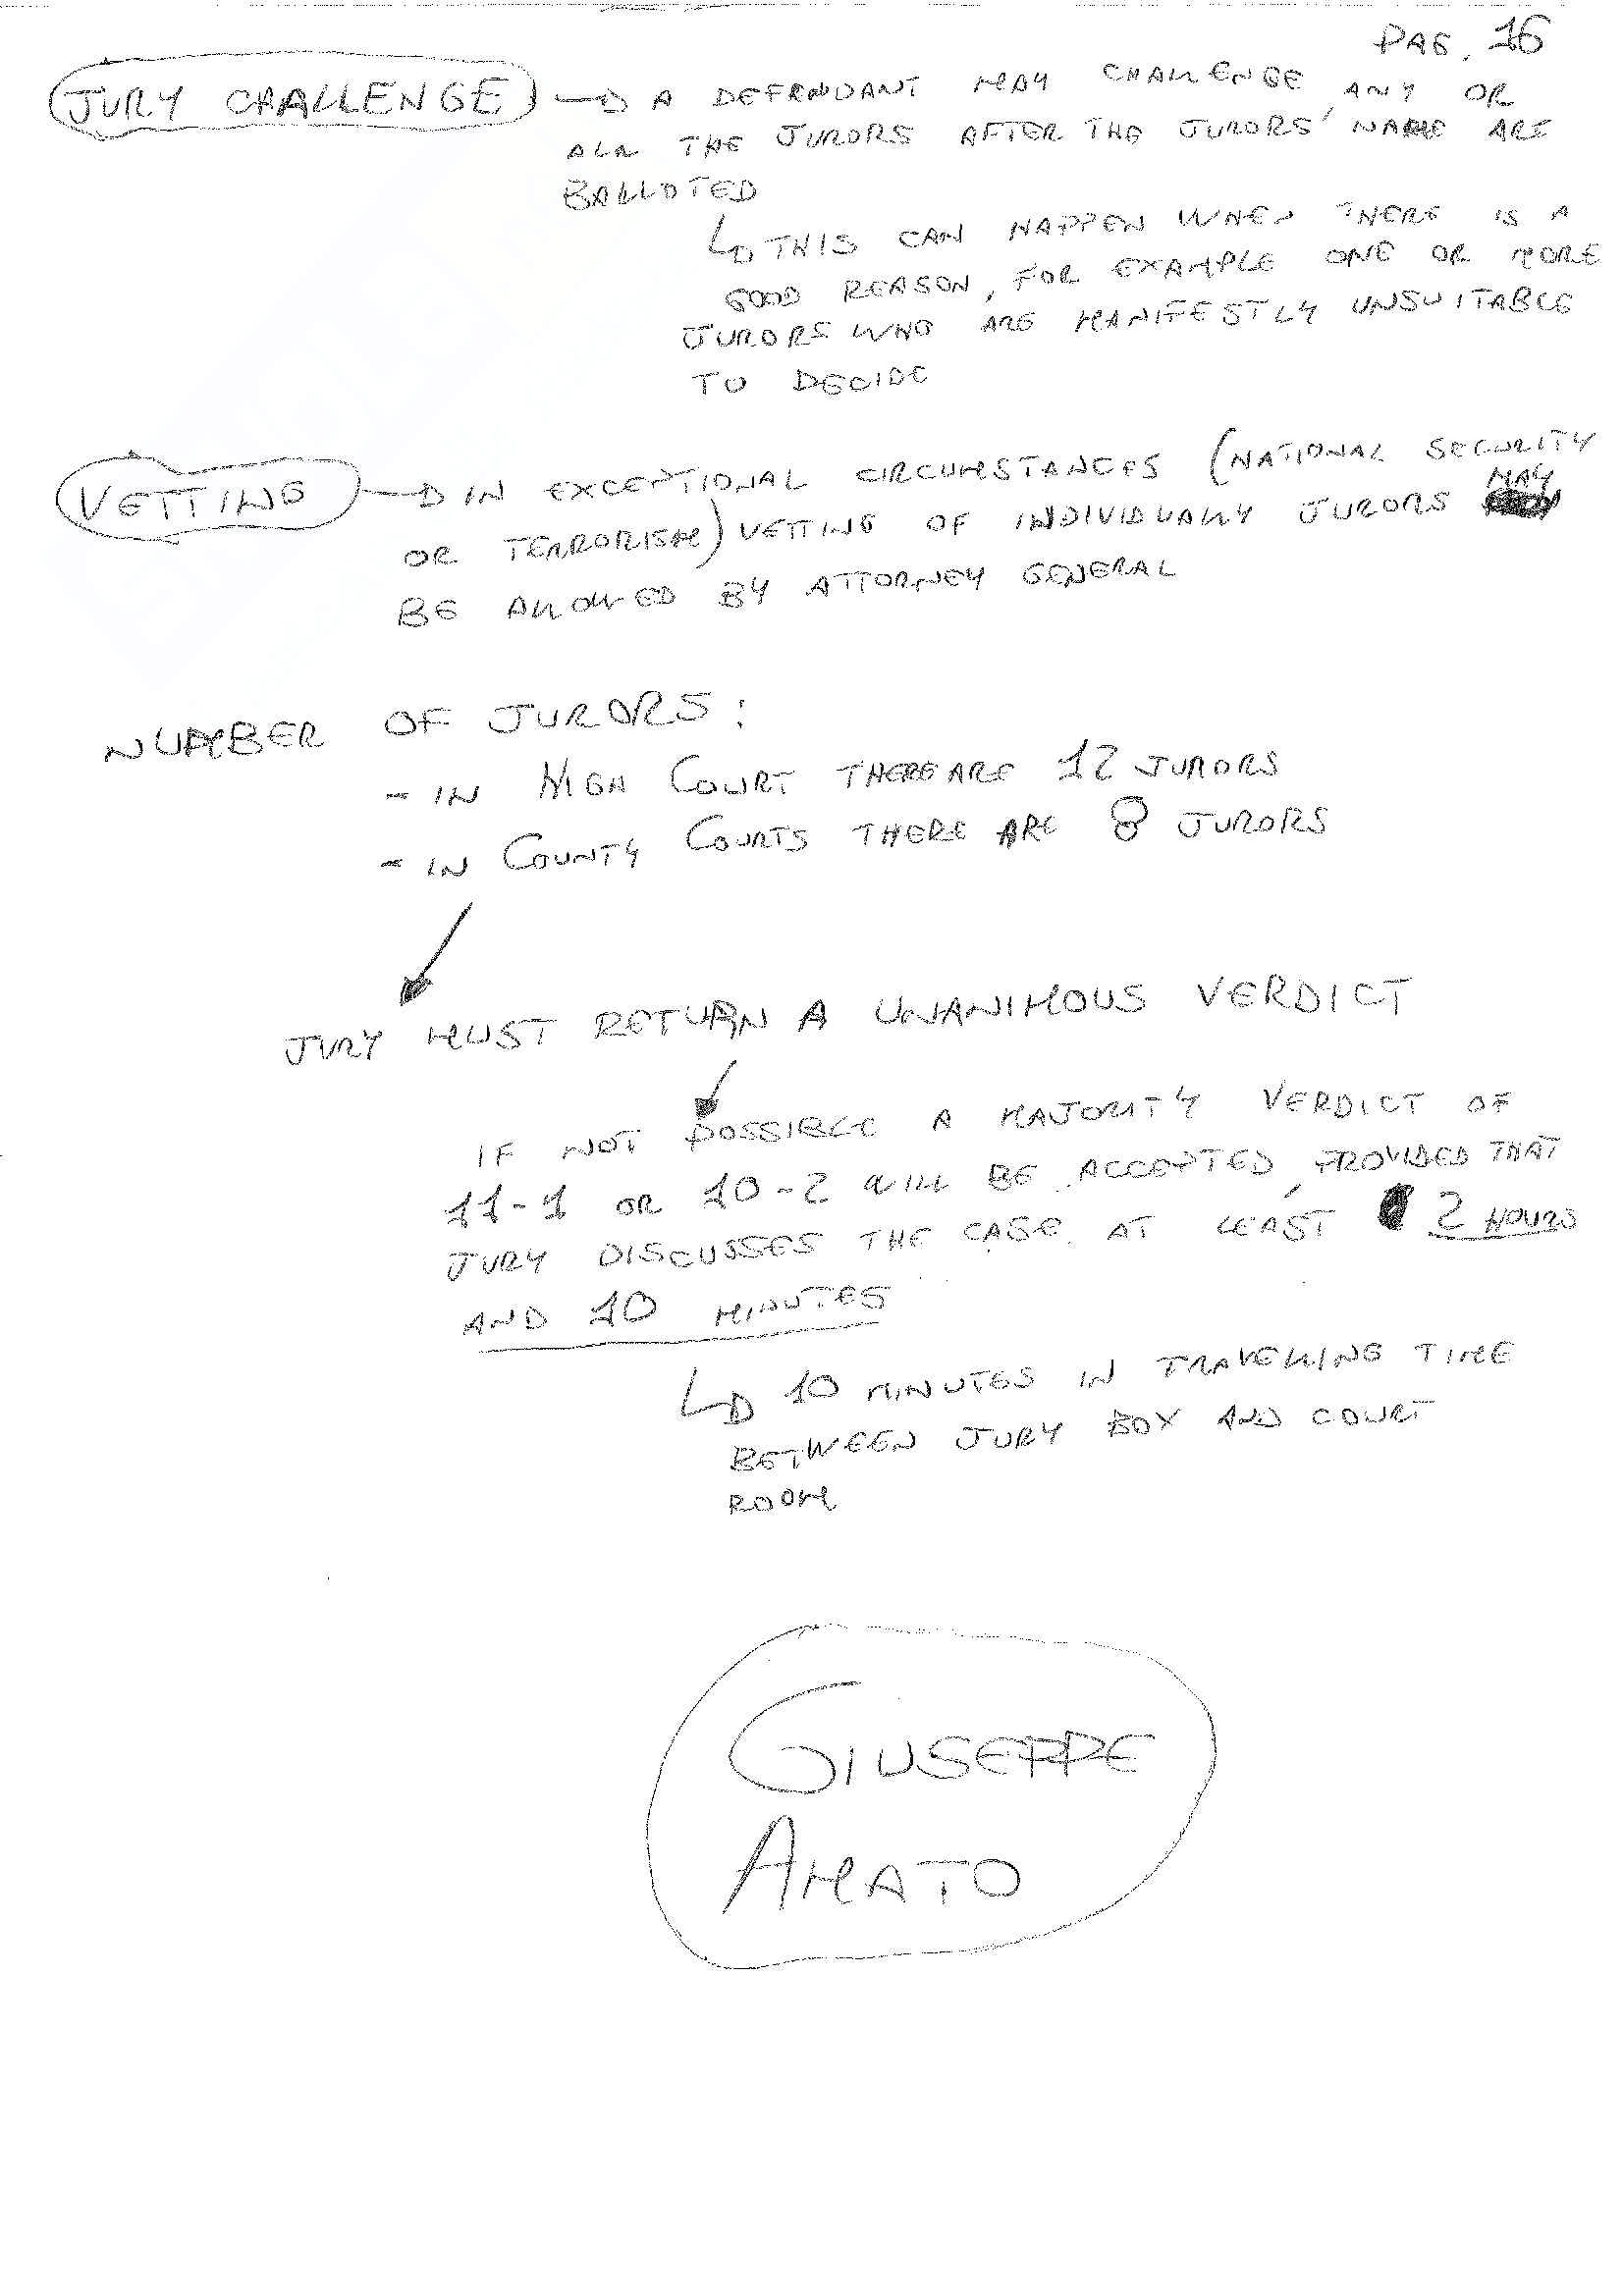 PAG. 16
JURY CHALLENGE → A DEFENDANT MAY CHALLENGE ANY OR
ALL THE JURORS AFTER THE JURORS' NAME ARE
BALLOTED
↳ THIS CAN HAPPEN WHEN THERE IS A
GOOD REASON, FOR EXAMPLE ONE OR MORE
JURORS WHO ARE MANIFESTLY UNSUITABLE
TO DECIDE
VETTING → IN EXCEPTIONAL CIRCUMSTANCES (NATIONAL SECURITY
OR TERRORISM) VETTING OF INDIVIDUALLY JURORS MAY
BE ALLOWED BY ATTORNEY GENERAL
NUMBER OF JURORS:
- IN HIGH COURT THERE ARE 12 JURORS
- IN COUNTY COURTS THERE ARE 8 JURORS
JURY MUST RETURN A UNANIMOUS VERDICT
IF NOT POSSIBLE A MAJORITY VERDICT OF
11-1 OR 10-2 WILL BE ACCEPTED, PROVIDED THAT
JURY DISCUSSES THE CASE AT LEAST 2 HOURS
AND 10 MINUTES
↳ 10 MINUTES IN TRAVELLING TIME
BETWEEN JURY BOX AND COURT
ROOM
GIUSEPPE
AMATO